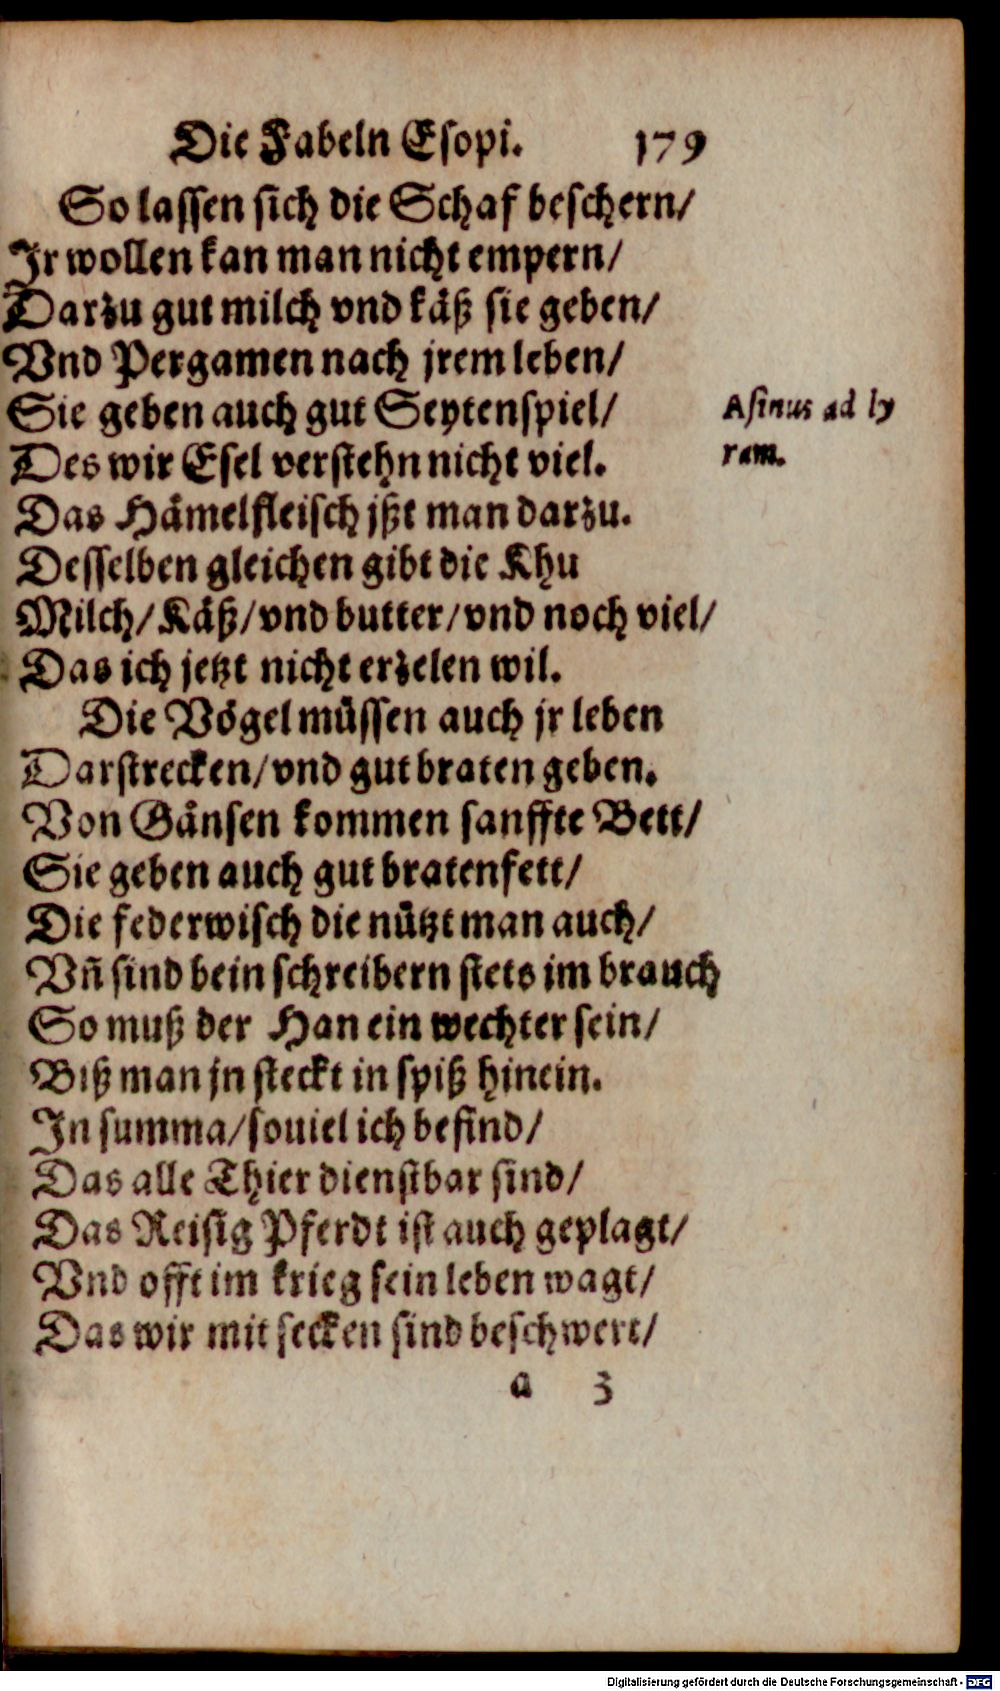 Die Fabeln Esopi. 179
So lassen sich die Schaf beschern/
Jr wollen kan man nicht empern/
Darzu gut milch vnd käß sie geben/
Vnd Pergamen nach jrem leben/
Sie geben auch gut Seytenspiel/
Asinus ad ly
Des wir Esel verstehn nicht viel.
ram.
Das Hämelfleisch jßt man darzu.
Desselben gleichen gibt die Khu
Milch/ Käß/ vnd butter/ vnd noch viel/
Das ich jetzt nicht erzelen wil.
Die Vögel müssen auch jr leben
Darstrecken/ vnd gut braten geben.
Von Gänsen kommen sanffte Bett/
Sie geben auch gut bratenfett/
Die federwisch die nützt man auch/
Vñ sind bein schreibern stets im brauch
So muß der Han ein wechter sein/
Biß man jn steckt in spiß hinein.
In summa/ souiel ich befind/
Das alle Thier dienstbar sind/
Das Reisig Pferdt ist auch geplagt/
Vnd offt im krieg sein leben wagt/
Das wir mit secken sind beschwert/
a 3
Digitalisierung gefördert durch die Deutsche Forschungsgemeinschaft - DFG